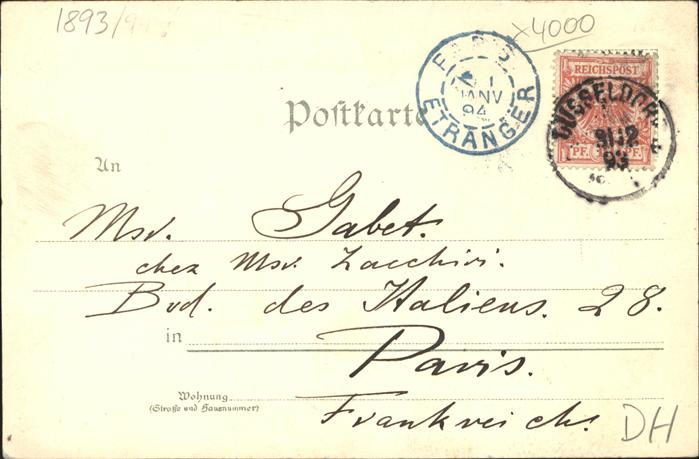 1893/94
x4000
PARIS
1
JANV
94
ETRANGER
REICHSPOST
PF. PF
DÜSSELDORF
31 12
93
Postkarte
An
Msr. Gabet.
chez Msr. Zacchiri.
Bvd. des Italiens. 28.
in Paris.
Wohnung
(Straße und Hausnummer)
Frankreich.
DH